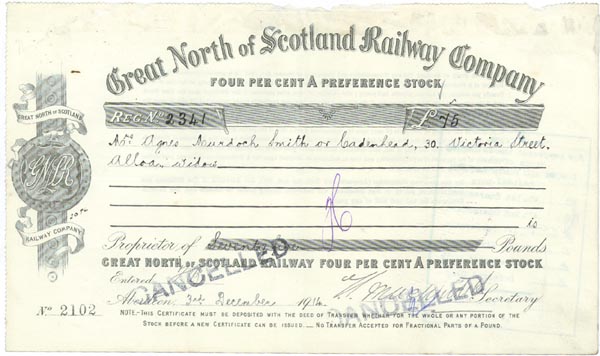 Great North of Scotland Railway Company
FOUR PER CENT A PREFERENCE STOCK
REG. No. 2341 £ 75
GREAT NORTH OF SCOTLAND
GNSR
RAILWAY COMPANY
Mrs Agnes Murdoch Smith or Cadenhead, 30 Victoria Street,
Alloa, widow
is
Proprietor of Seventy five Pounds
GREAT NORTH OF SCOTLAND RAILWAY FOUR PER CENT A PREFERENCE STOCK
CANCELLED
CANCELLED
Entered
Aberdeen 3rd December 1914. Secretary
No 2102
NOTE.-THIS CERTIFICATE MUST BE DEPOSITED WITH THE DEED OF TRANSFER WHETHER FOR THE WHOLE OR ANY PORTION OF THE
STOCK BEFORE A NEW CERTIFICATE CAN BE ISSUED. — NO TRANSFER ACCEPTED FOR FRACTIONAL PARTS OF A POUND.